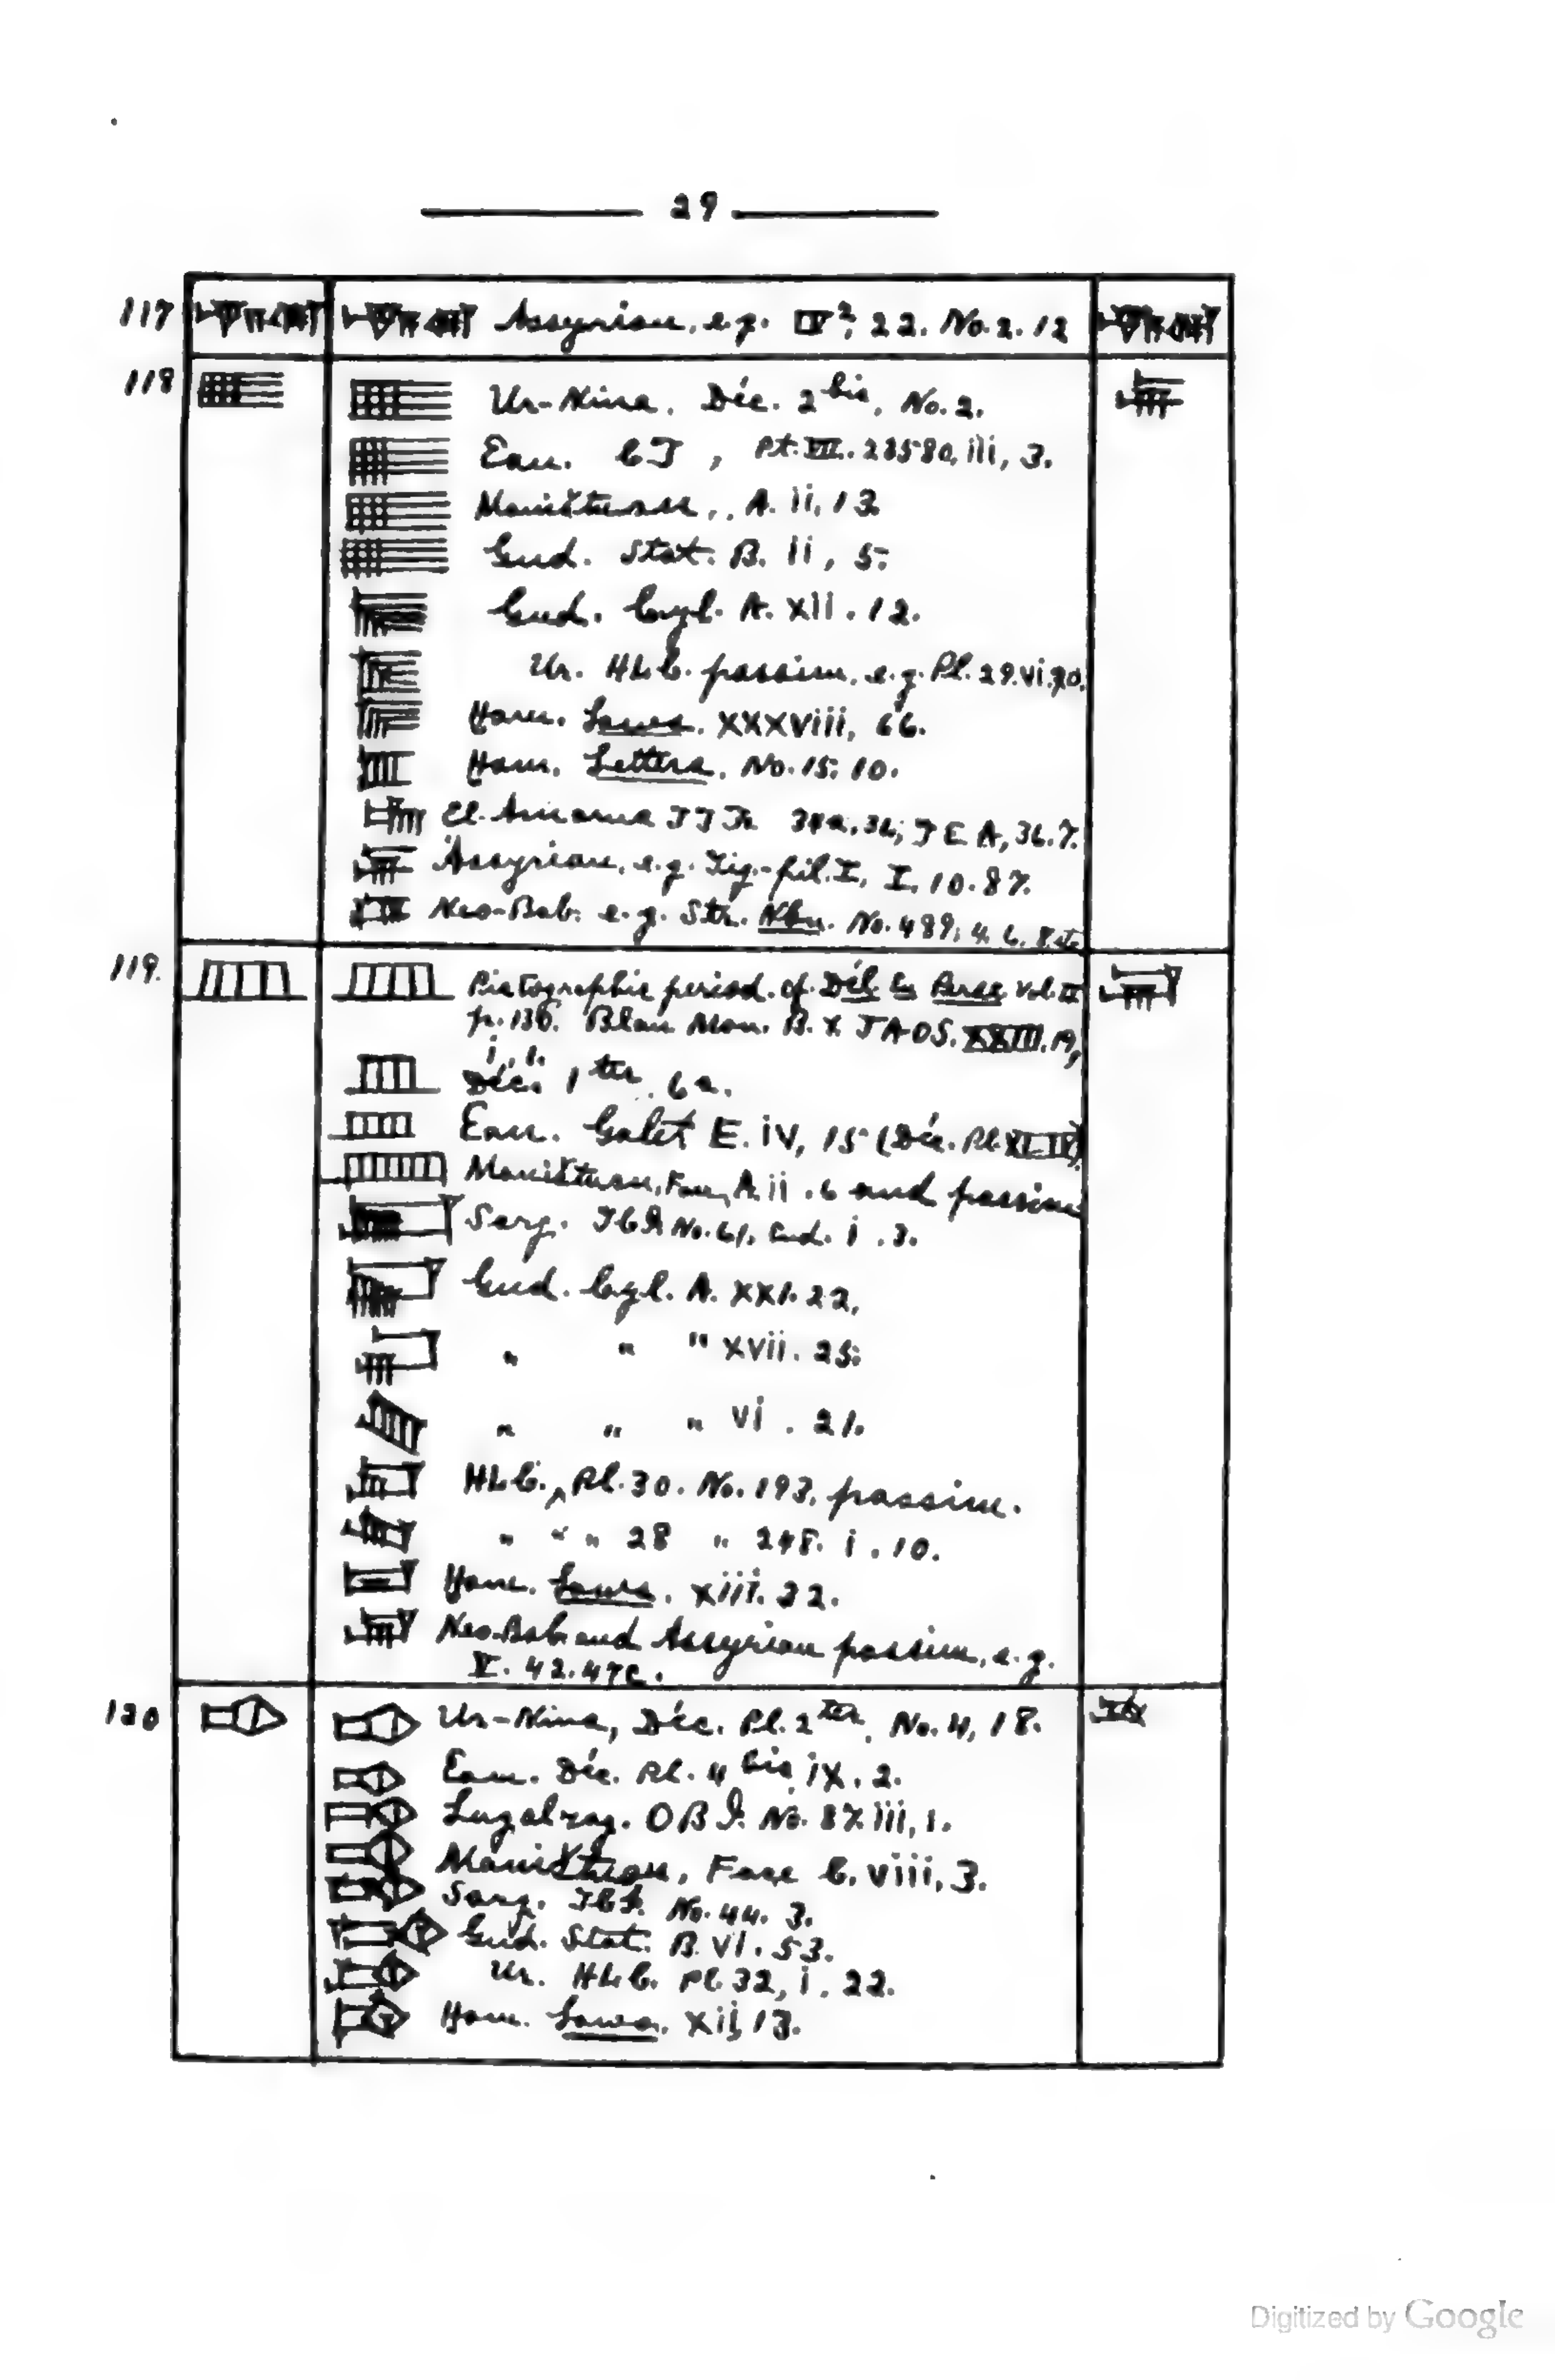 29
117 Assyrian, e.g. IV², 22. No. 2. 12
118 Ur-Nina. Déc. 2bis, No. 2.
Ean. CT, Pt. VII. 23580, iii, 3.
Maništusu, A. ii, 13
Gud. Stat. B. ii, 5.
Gud. Cyl. A. xii. 12.
Ur. HLC. passim, e.g. Pl. 29. vi. 20.
Ham. Laws. XXXVIII, 66.
Ham. Letters, No. 15. 10.
El-Amarna 36; TEA, 36. 7.
Assyrian, e.g. Tig.-pil. I, I. 10. 87.
Neo-Bab. e.g. Str. Nbn. No. 489; 4. 6. 8
119. Pictographic period. cf. Dél. en Perse Vol. II
p. 130. Blau Mon. B. & JAOS. XXIII. 19,
i, 1.
Déc. 1ter. 6a.
Ean. Galet E. iv, 15 (Déc. Pl.
Maništusu, Face, A. ii. 6 and passim
Sarg. No. 61, Cud. i. 3.
Gud. Cyl. A. xxi. 22,
" " " xvii. 25.
" " " vi. 21.
HLC. Pl. 30. No. 193, passim.
" " " 28 " 248. i. 10.
Ham. Laws. xiii. 22.
Neo-Bab. and Assyrian passim, e.g.
V. 42. 47c.
120 Ur-Nina, Déc. Pl. 2ter, No. 4, 18.
Ean. Déc. Pl. 4bis, ix. 2.
Lugalzag. OBI. No. 87 iii, 1.
Maništusu, Face C. viii, 3.
Sarg. No. 44. 3.
Gud. Stat. B. vi. 53.
Ur. HLC. Pl. 32, i. 22.
Ham. Laws. xii, 13.
Digitized by Google